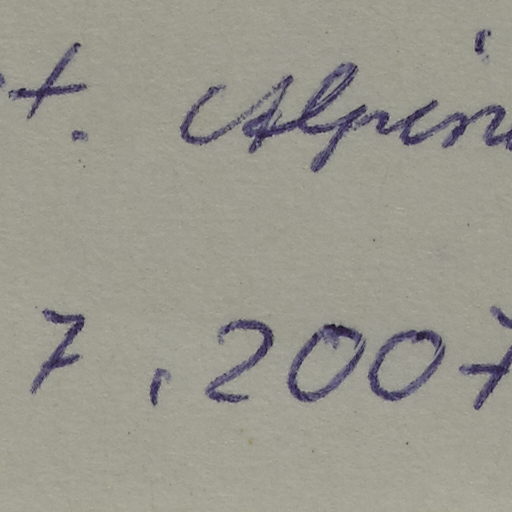 t. Alpin
7.2007